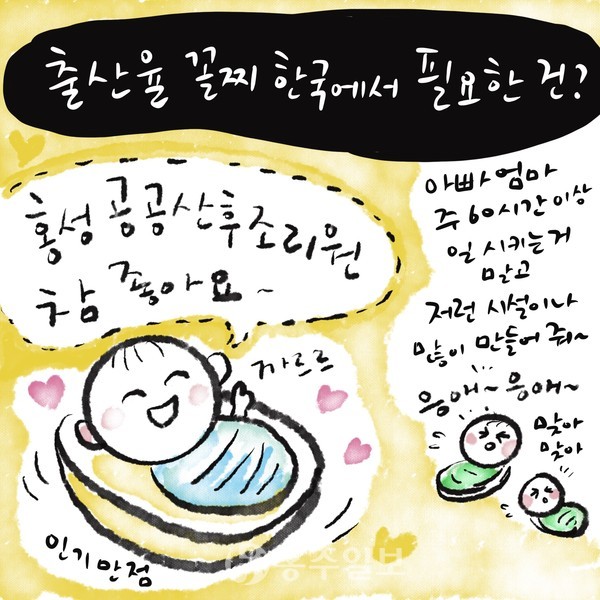 출산율 꼴찌 한국에서 필요한 건?
홍성 공공산후조리원
참 좋아요~
까르르
인기만점
아빠 엄마
주 60시간 이상
일 시키는거
말고
저런 시설이나
많이 만들어 줘~
응애~ 응애~
맞아
맞아
동주일보